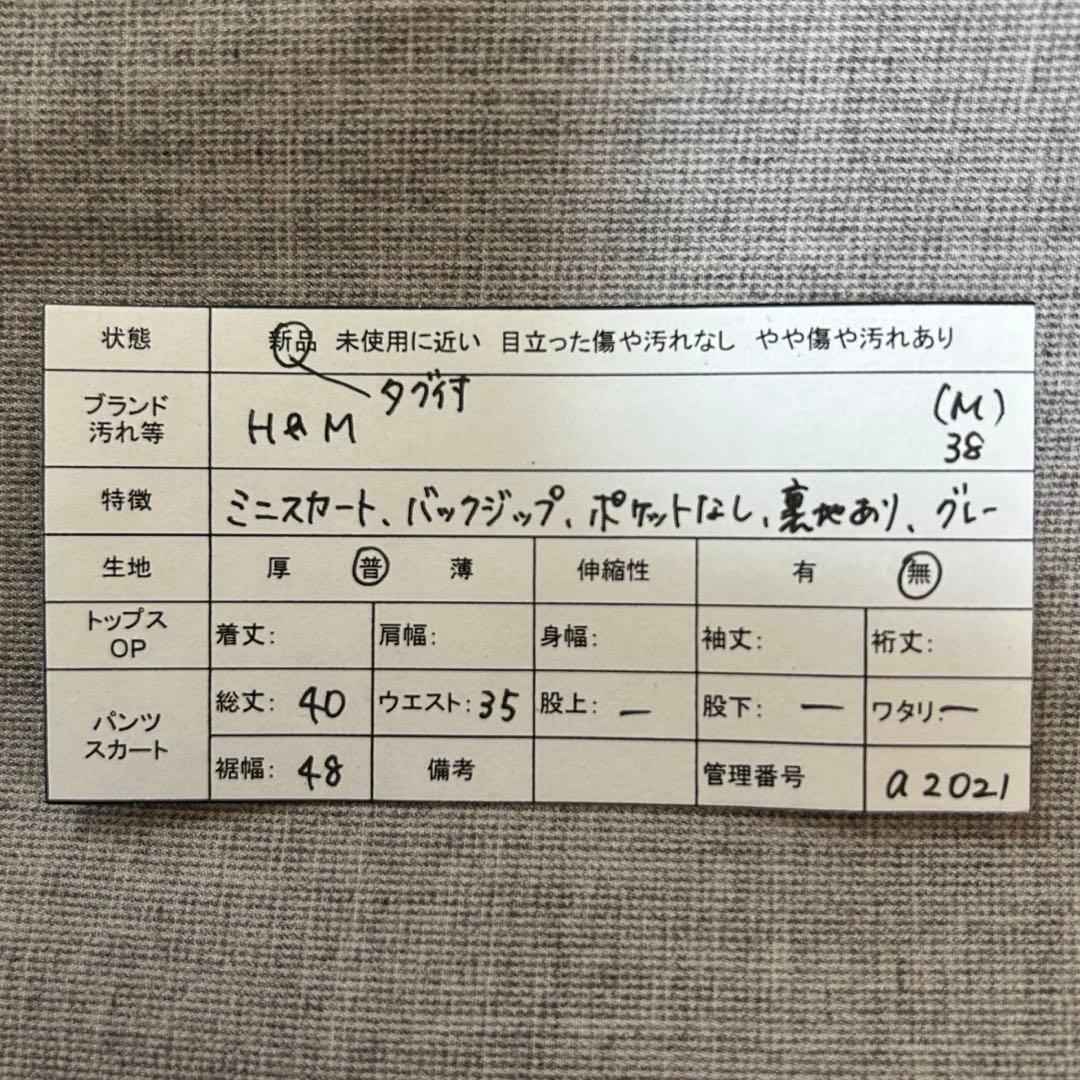 状態 新品 未使用に近い 目立った傷や汚れなし やや傷や汚れあり
タグ付
ブランド
汚れ等 H&M (M)
38
特徴 ミニスカート、バックジップ、ポケットなし、裏地あり、グレー
生地 厚 普 薄 伸縮性 有 無
トップス
OP 着丈: 肩幅: 身幅: 袖丈: 裄丈:
パンツ
スカート
総丈: 40 ウエスト: 35 股上: ー 股下: ー ワタリ: ー
裾幅: 48 備考 管理番号 a2021